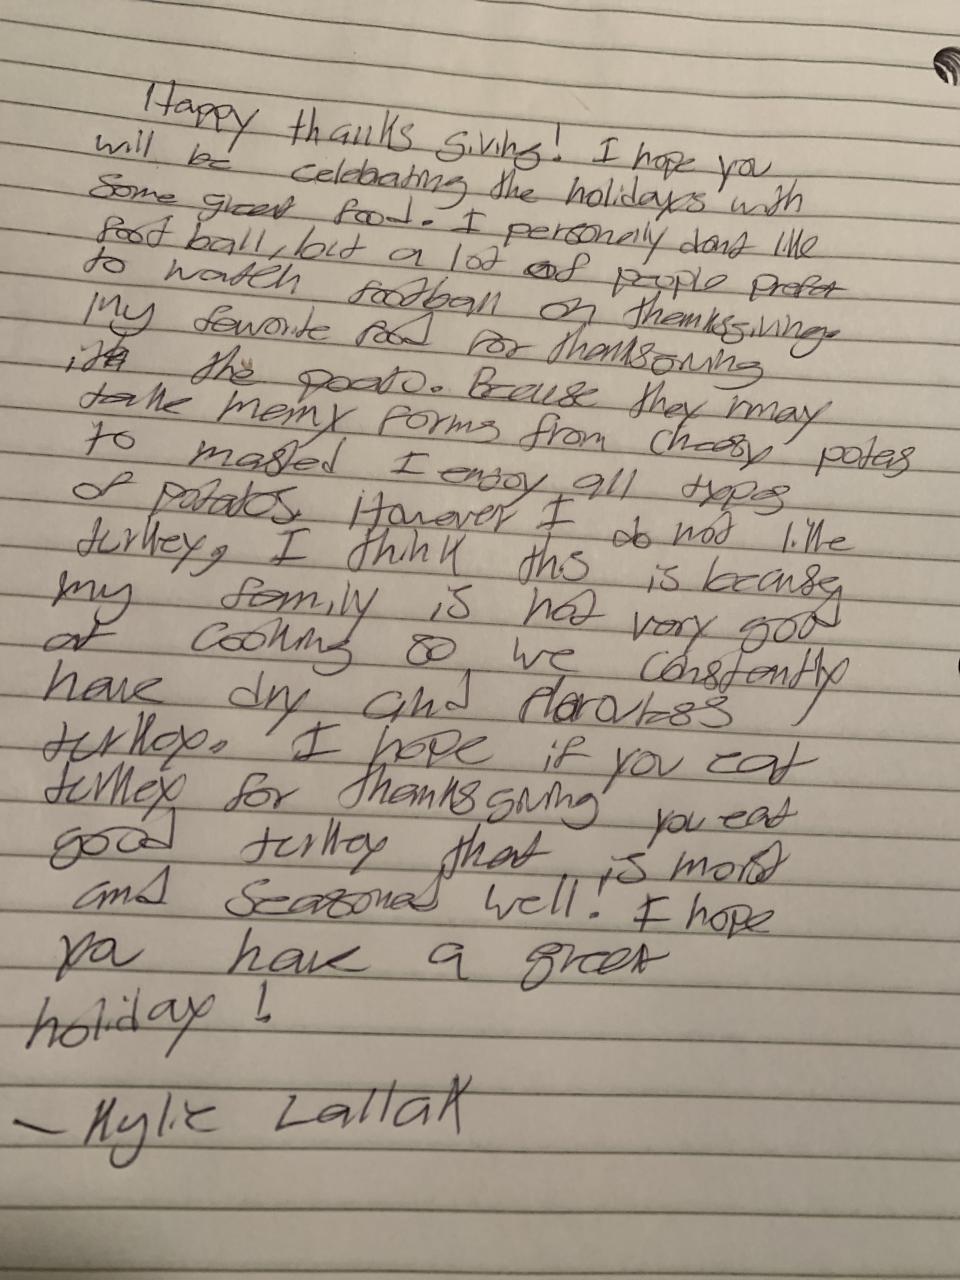 Happy thanks giving! I hope you
will be celebrating the holidays with
Some great food. I personally dont like
foot ball, but a lot of people prefer
to watch football on thanksgiving.
My favorite food for thanksgiving
is the poato. Because they may
take many forms from cheesy potatos
to mashed I enjoy all types
of potatos. However I do not like
turkey, I think this is because
my family is not very good
at cooking so we constantly
have dry and flavorless
turkey. I hope if you eat
turkey for thanksgiving you eat
good turkey that is moist
and seasoned well! I hope
ya have a great
holiday!
- Kylie Lallak